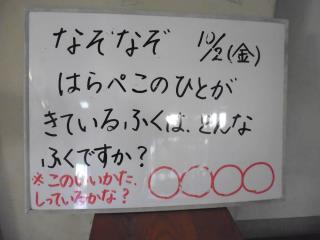 なぞなぞ 10/2(金)
はらぺこのひとが
きているふくは、どんな
ふくですか?
※このいいかた、
しっているかな? ○○○○